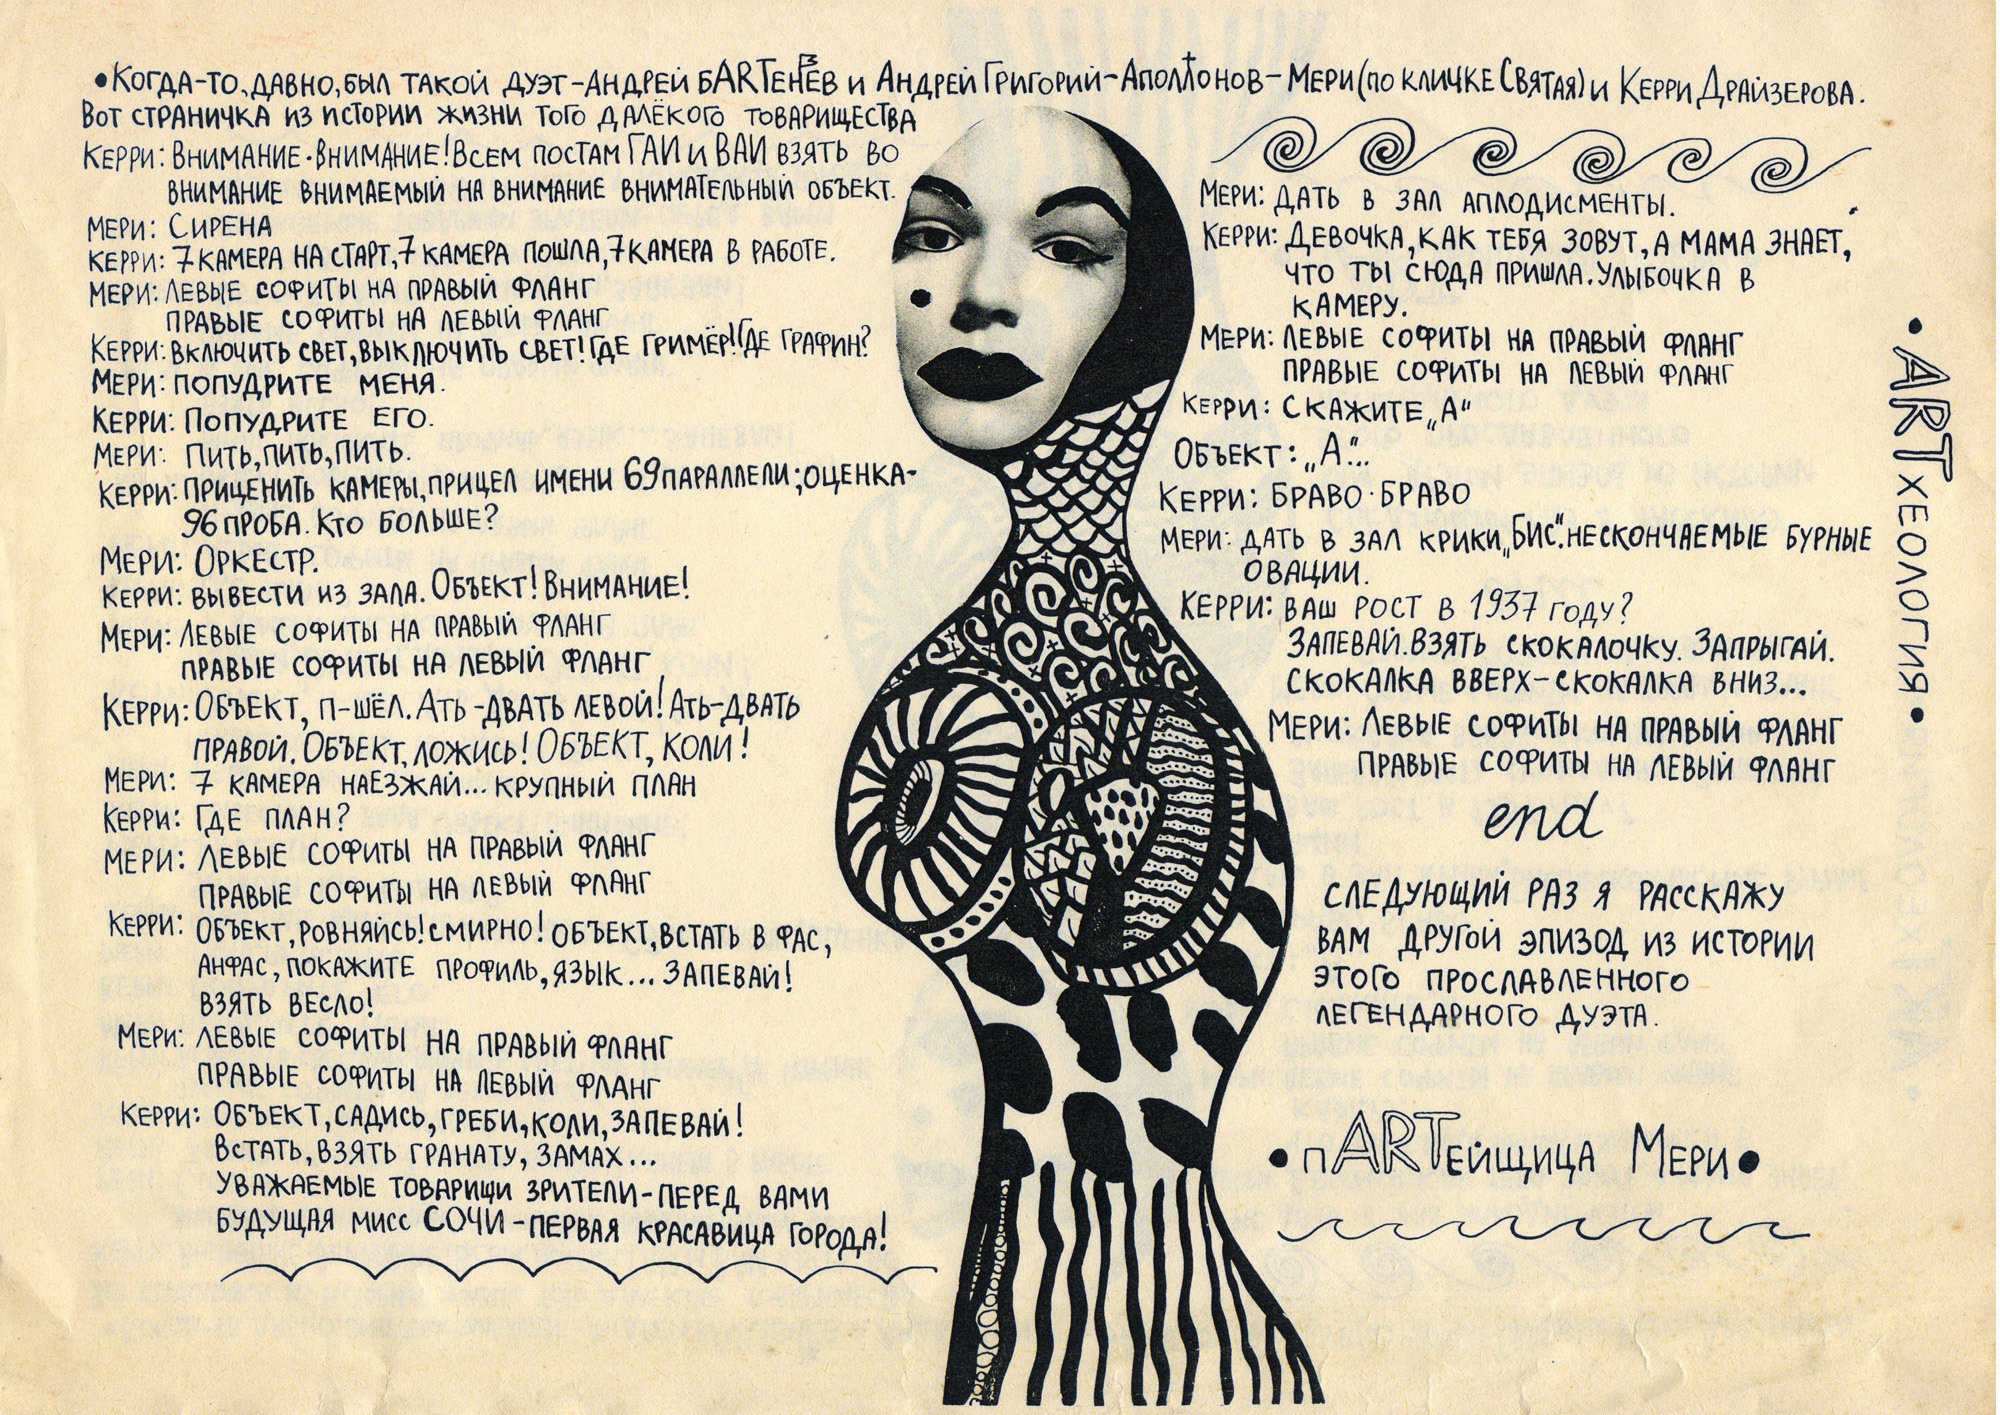 •Когда-то, давно, был такой дуэт-Андрей бARTенев и Андрей Григорий-Аполлонов-Мери (по кличке Святая) и Керри Драйзерова.
Вот страничка из истории жизни того далёкого товарищества
Керри: Внимание·внимание! Всем постам ГАИ и ВАИ взять во
внимание внимаемый на внимание внимательный объект.
Мери: Сирена
Керри: 7 камера на старт, 7 камера пошла, 7 камера в работе.
Мери: Левые софиты на правый фланг
правые софиты на левый фланг
Керри: включить свет, выключить свет! Где гримёр! Где графин?
Мери: попудрите меня.
Керри: Попудрите его.
Мери: Пить, пить, пить.
Керри: Приценить камеры, прицел имени 69 параллели; оценка-
96 проба. Кто больше?
Мери: Оркестр.
Керри: вывести из зала. Объект! Внимание!
Мери: Левые софиты на правый фланг
правые софиты на левый фланг
Керри: Объект, п-шёл. Ать-двать левой! Ать-двать
правой. Объект, ложись! Объект, коли!
Мери: 7 камера наезжай... крупный план
Керри: Где план?
Мери: Левые софиты на правый фланг
правые софиты на левый фланг
Керри: Объект, ровняйсь! смирно! Объект, встать в фас,
анфас, покажите профиль, язык... запевай!
Взять весло!
Мери: Левые софиты на правый фланг
правые софиты на левый фланг
Керри: Объект, садись, греби, коли, запевай!
Встать, взять гранату, замах...
Уважаемые товарищи зрители-перед вами
будущая мисс СОЧИ-первая красавица города!
Мери: Дать в зал аплодисменты.
Керри: Девочка, как тебя зовут, а мама знает,
что ты сюда пришла. Улыбочка в
камеру.
Мери: Левые софиты на правый фланг
правые софиты на левый фланг
Керри: Скажите „А“
Объект: „А“...
Керри: Браво·браво
Мери: дать в зал крики „Бис“. нескончаемые бурные
овации.
Керри: ваш рост в 1937 году?
Запевай. Взять скокалочку. Запрыгай.
Скокалка вверх-скокалка вниз...
Мери: Левые софиты на правый фланг
правые софиты на левый фланг
end
Следующий раз я расскажу
вам другой эпизод из истории
этого прославленного
легендарного дуэта.
•пARTейщица Мери•
•ARTхеология•